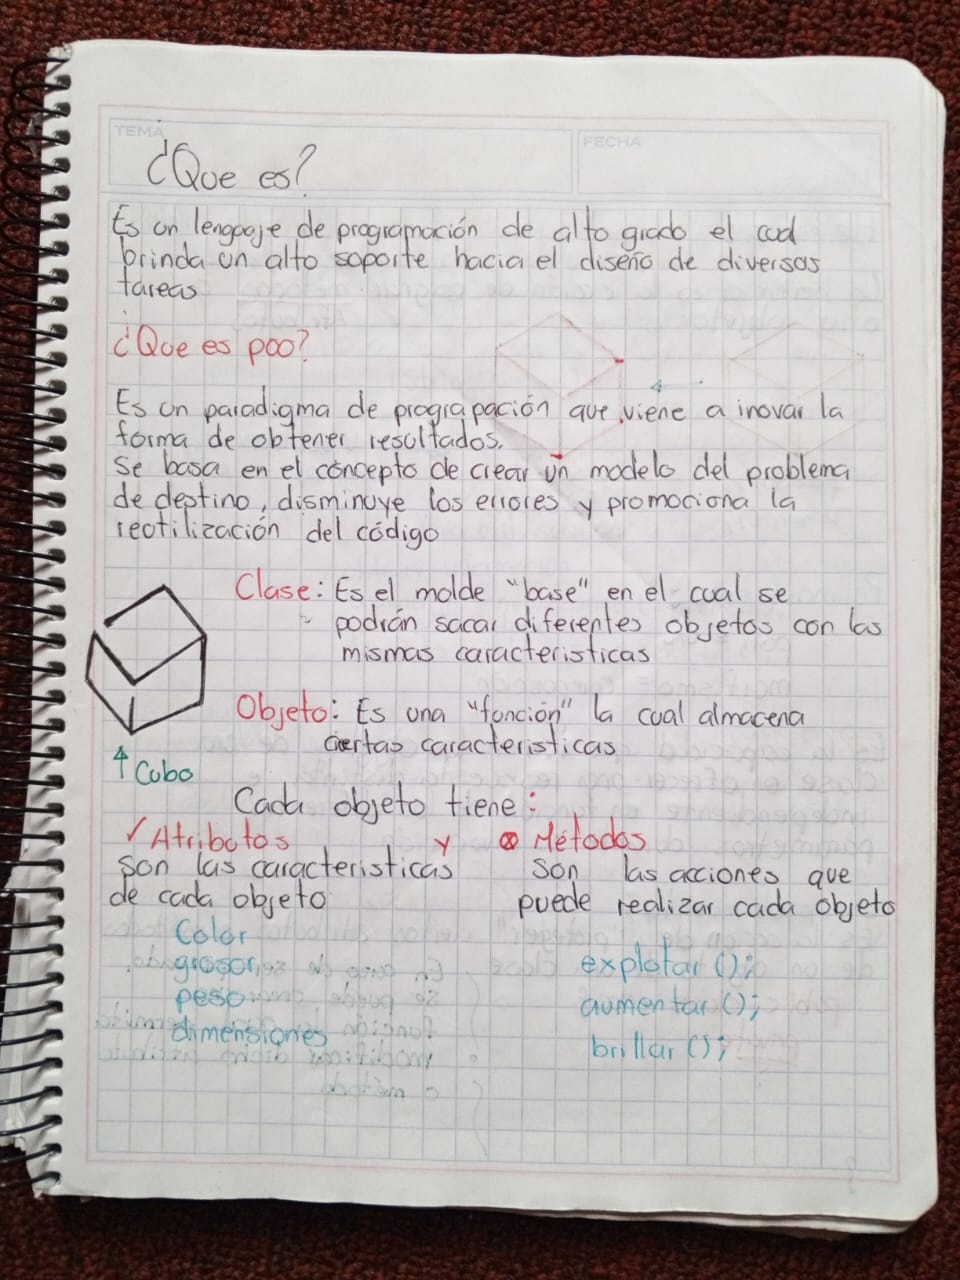 TEMA
FECHA
¿Que es?
Es un lenguaje de programación de alto grado el cual
brinda un alto soporte hacia el diseño de diversas
tareas
¿Que es poo?
Es un paradigma de prograpación que viene a inovar la
forma de obtener resultados.
Se basa en el concepto de crear un modelo del problema
de destino, disminuye los errores y promociona la
reutilización del código
Clase: Es el molde "base" en el cual se
podrán sacar diferentes objetos con las
mismas caracteristicas
Objeto: Es una "función" la cual almacena
ciertas caracteristicas
Cubo
Cada objeto tiene:
✓ Atributos y Métodos
son las caracteristicas
de cada objeto
Son las acciones que
puede realizar cada objeto
Color
grosor
peso
dimensiones
explotar ();
aumentar ();
brillar ();